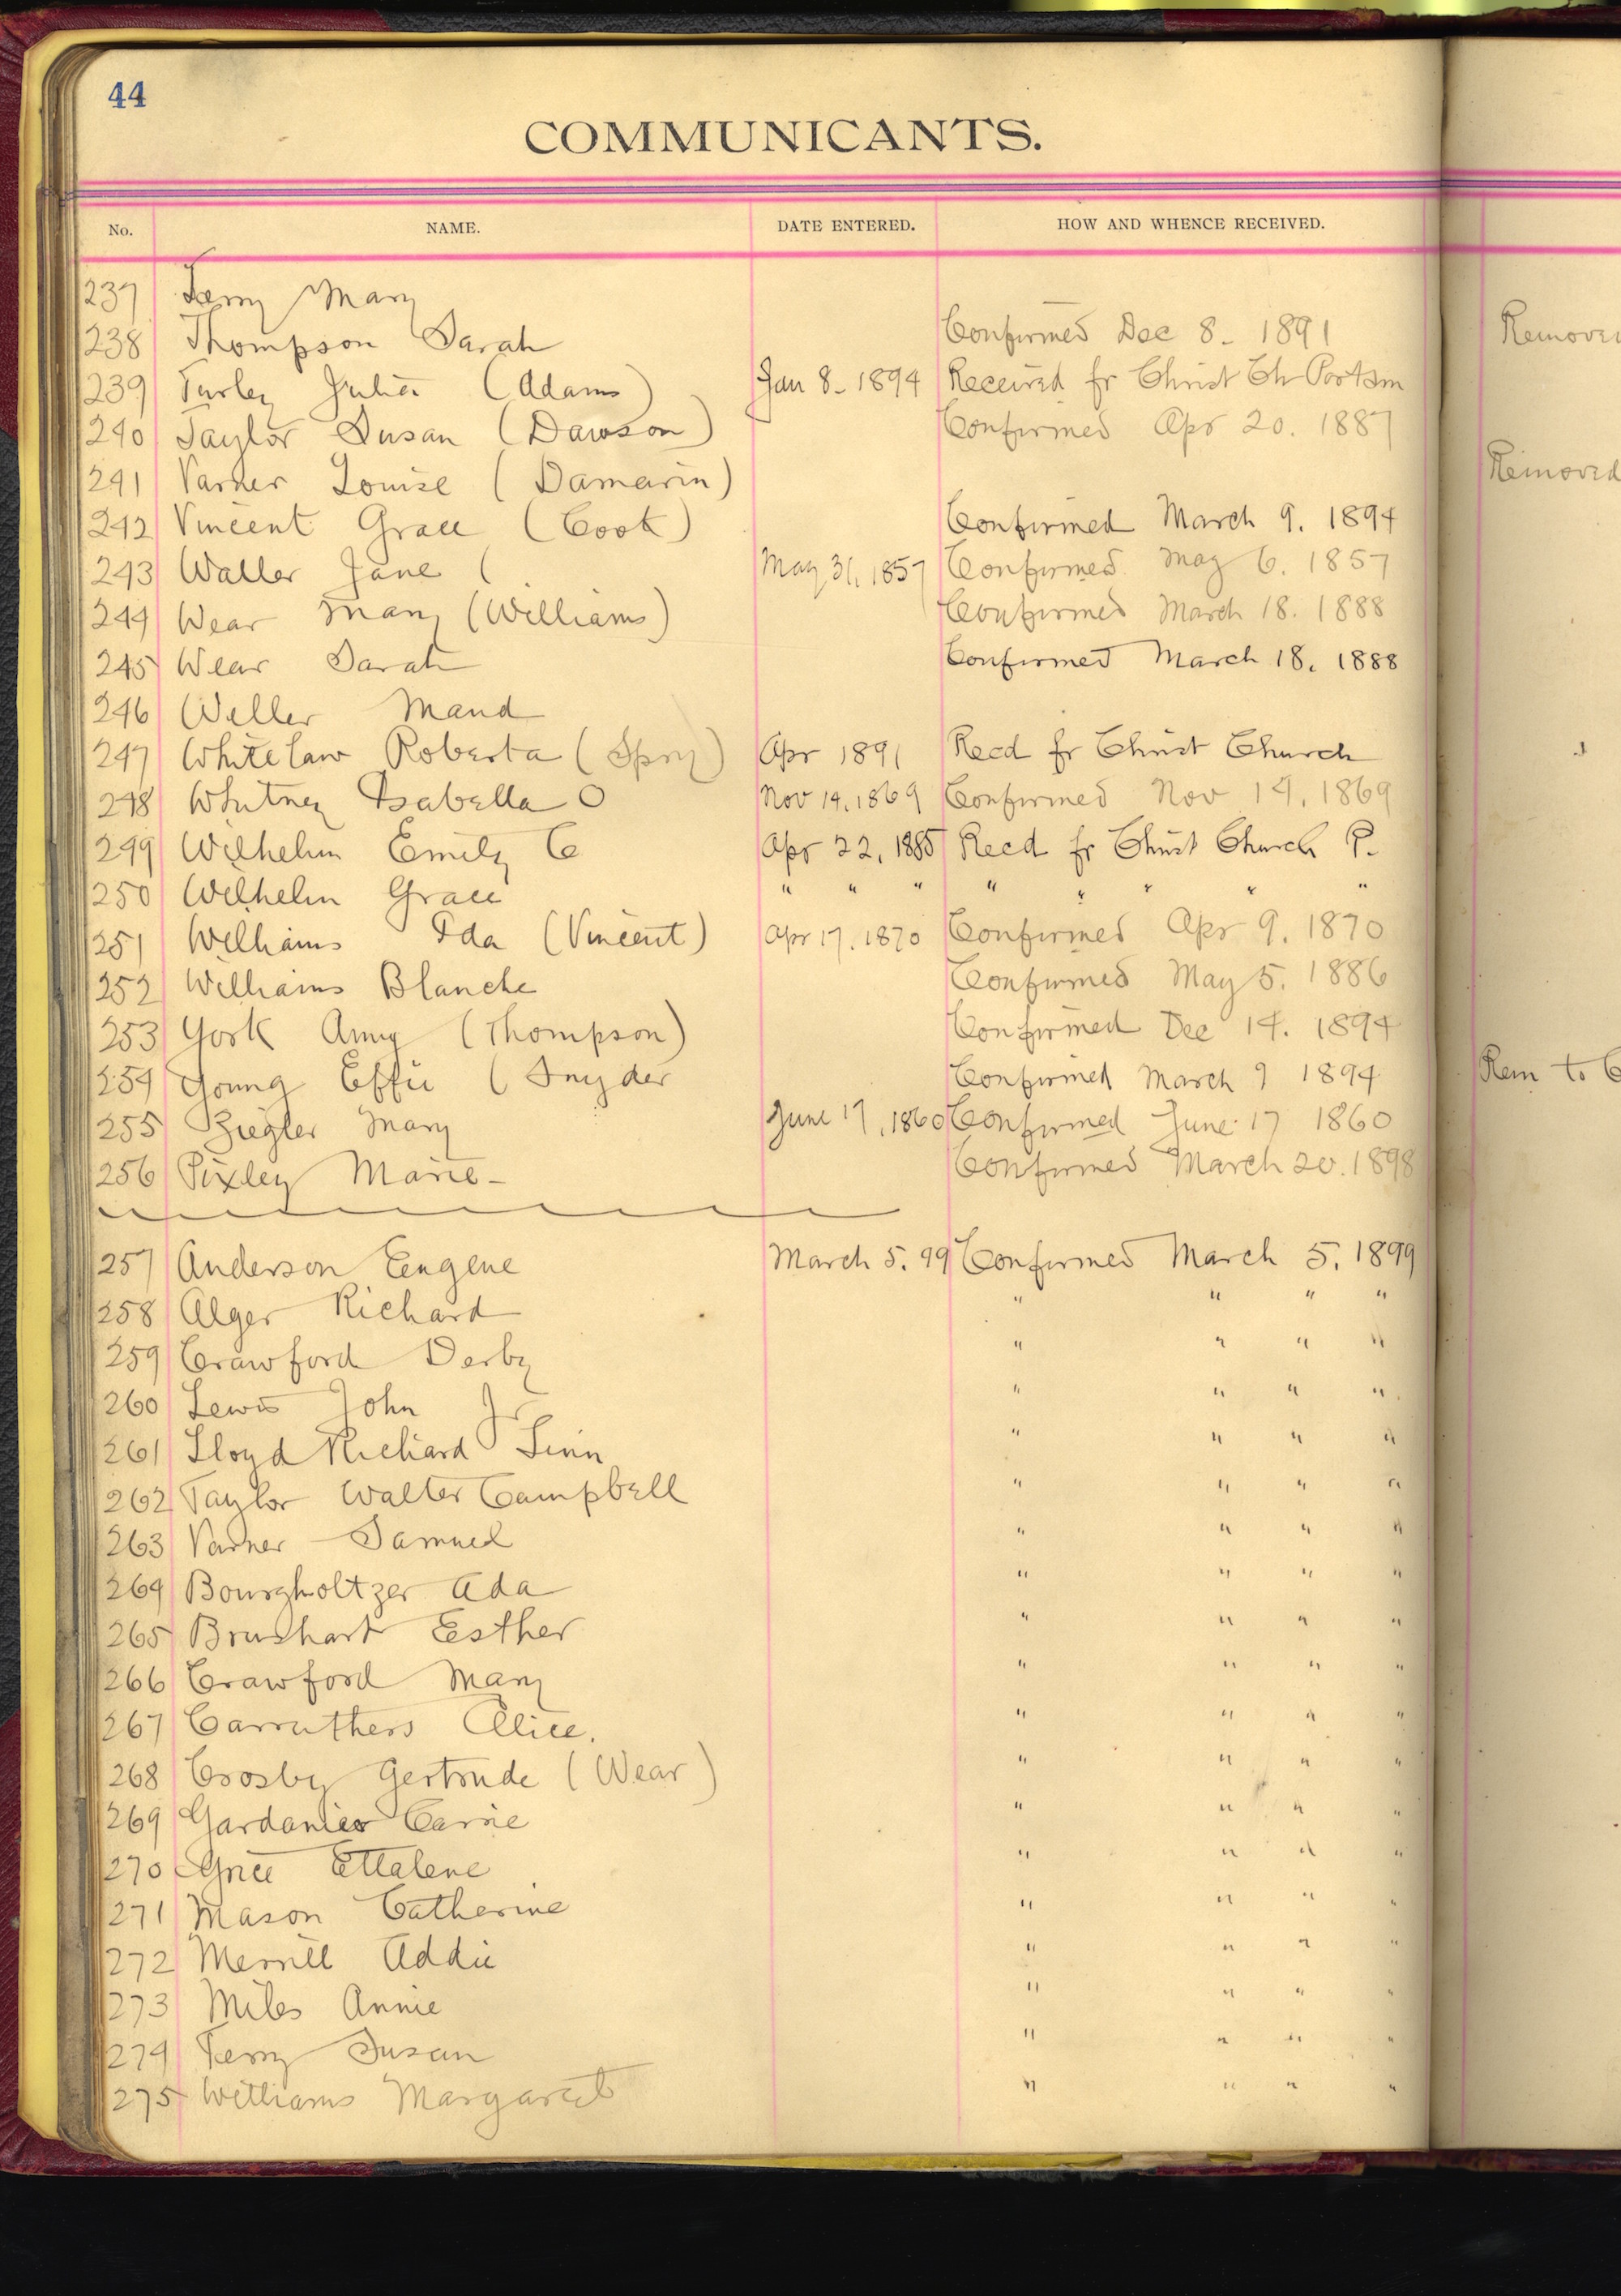 44
COMMUNICANTS.
No. NAME. DATE ENTERED. HOW AND WHENCE RECEIVED.
237 Terry Mary
238 Thompson Sarah Confirmed Dec 8 - 1891 Removed
239 Turley Julia (Adams) Jan 8 - 1894 Received fr Christ Ch Portsm
240 Taylor Susan (Dawson) Confirmed Apr 20. 1887
241 Varner Louise (Damarin) Removed
242 Vincent Grace (Cook) Confirmed March 9. 1894
243 Waller Jane ( May 31, 1857 Confirmed May 6. 1857
244 Wear Mary (Williams) Confirmed March 18. 1888
245 Wear Sarah Confirmed March 18. 1888
246 Weller Maud
247 Whitelaw Roberta (Spry) Apr 1891 Recd fr Christ Church
248 Whitney Isabella O Nov 14. 1869 Confirmed Nov 14. 1869
249 Wilhelm Emily C Apr 22, 1885 Recd fr Christ Church P.
250 Wilhelm Grace " " " " " " " "
251 Williams Ida (Vincent) Apr 17. 1870 Confirmed Apr 9. 1870
252 Williams Blanche Confirmed May 5. 1886
253 York Amy (Thompson) Confirmed Dec 14. 1894
254 Young Effie (Snyder Confirmed March 9 1894 Rem to C
255 Ziegler Mary June 17, 1860 Confirmed June 17 1860
256 Pixley Marie - Confirmed March 20. 1898
257 Anderson Eugene March 5. 99 Confirmed March 5. 1899
258 Alger Richard " " " "
259 Crawford Derby " " " "
260 Lewis John Jr " " " "
261 Lloyd Richard Linn " " " "
262 Taylor Walter Campbell " " " "
263 Varner Samuel " " " "
264 Bourgholtzer Ada " " " "
265 Brushart Esther " " " "
266 Crawford Mary " " " "
267 Carruthers Alice. " " " "
268 Crosby Gertrude (Wear) " " " "
269 Gardanier Carrie " " " "
270 Grice Ettalene " " " "
271 Mason Catherine " " " "
272 Merrill Addie " " " "
273 Miles Annie " " " "
274 Terry Susan " " " "
275 Williams Margaret " " " "